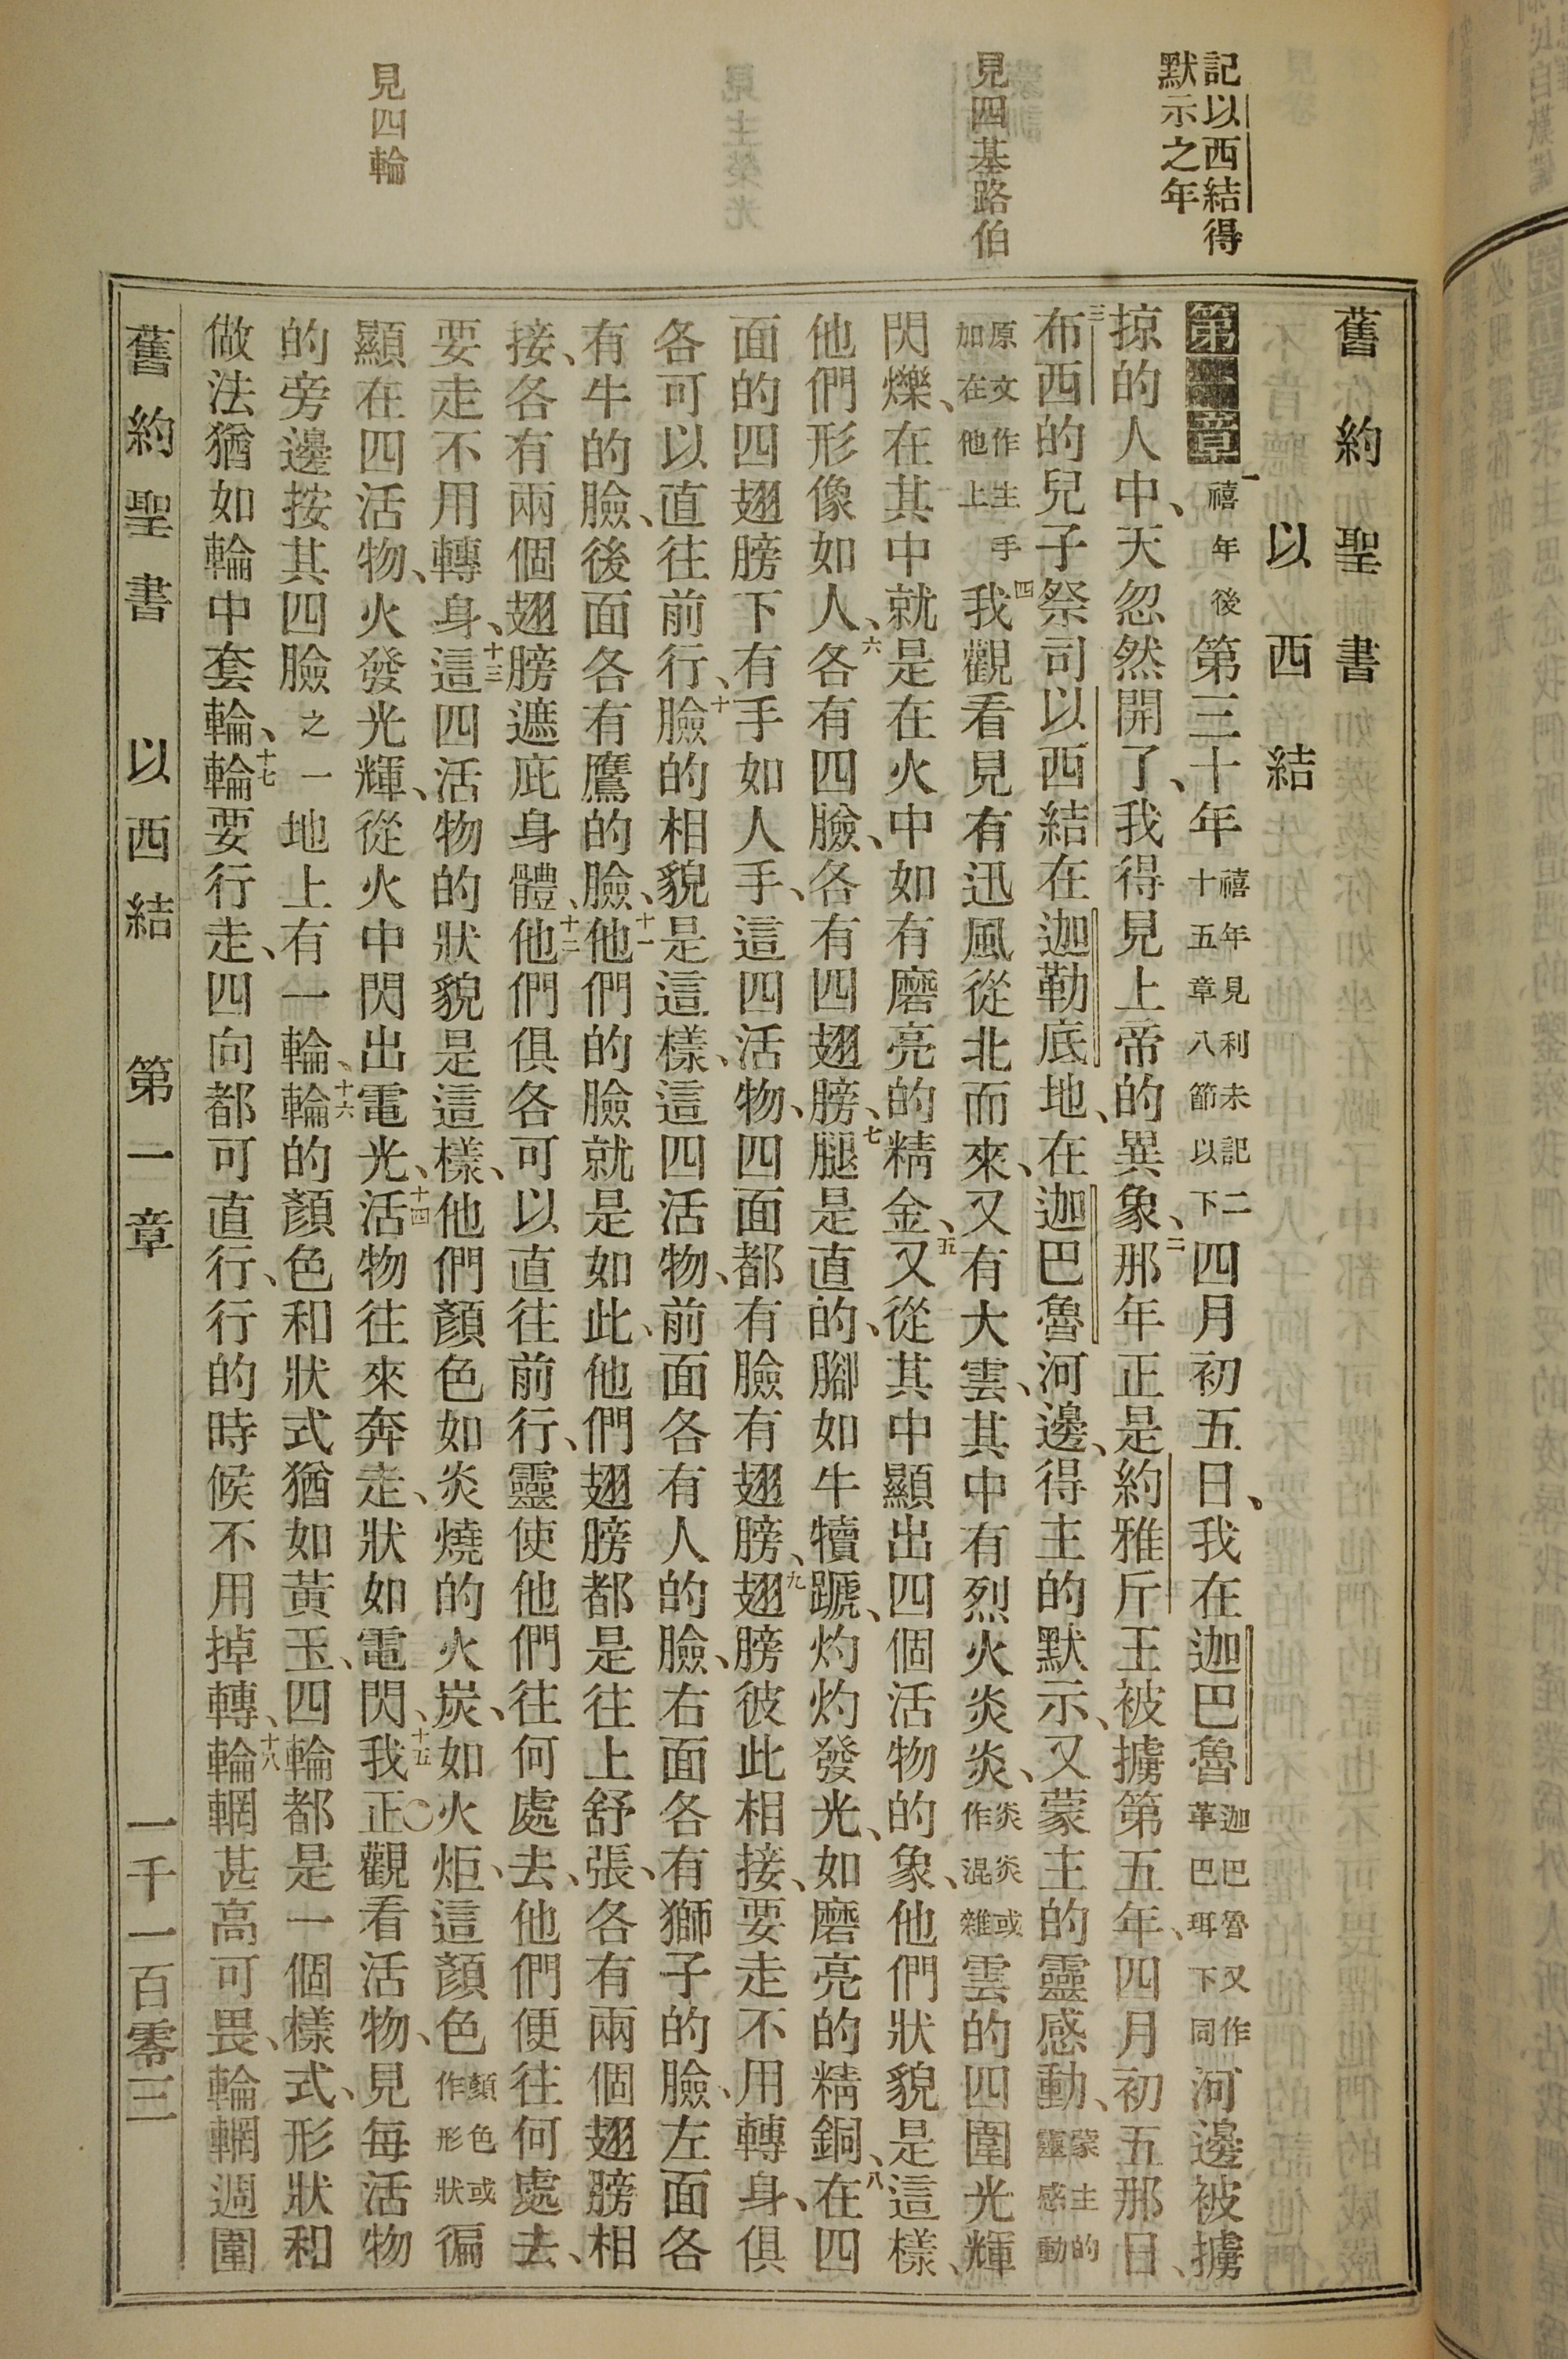 記以西結得
默示之年
見四基路伯
見四輪
舊約聖書
以西結
第一章一禧年後第三十年禧年見利未記二十五章八節以下四月初五日、我在迦巴魯迦巴魯又作革巴珥下同河邊被擄
掠的人中、天忽然開了、我得見上帝的異象、二那年正是約雅斤王被擄第五年、四月初五那日、
三布西的兒子祭司以西結在迦勒底地、在迦巴魯河邊、得主的默示、又蒙主的靈感動、蒙主的靈感動
原文作主手加在他上四我觀看見有迅風從北而來、又有大雲、其中有烈火炎炎、炎炎或作混雜雲的四圍光輝
閃爍、在其中就是在火中如有磨亮的精金、五又從其中顯出四個活物的象、他們狀貌是這樣、
他們形像如人、六各有四臉、各有四翅膀、七腿是直的、腳如牛犢蹏、灼灼發光、如磨亮的精銅、八在四
面的四翅膀下有手如人手、這四活物、四面都有臉有翅膀、九翅膀彼此相接、要走不用轉身、俱
各可以直往前行、十臉的相貌是這樣、這四活物、前面各有人的臉、右面各有獅子的臉、左面各
有牛的臉、後面各有鷹的臉、十一他們的臉就是如此、他們翅膀都是往上舒張、各有兩個翅膀相
接、各有兩個翅膀遮庇身體、十二他們俱各可以直往前行、靈使他們往何處去、他們便往何處去、
要走不用轉身、十三這四活物的狀貌是這樣、他們顏色如炎燒的火炭、如火炬、這顏色顏色或作形狀徧
顯在四活物、火發光輝、從火中閃出電光、十四活物往來奔走、狀如電閃、十五〇我正觀看活物、見每活物
的旁邊按其四臉之一地上有一輪、十六輪的顏色和狀式猶如黃玉、四輪都是一個樣式、形狀和
做法猶如輪中套輪、十七輪要行走、四向都可直行、行的時候不用掉轉、十八輪輞甚高可畏、輪輞週圍
舊約聖書 以西結 第一章 一千一百零三